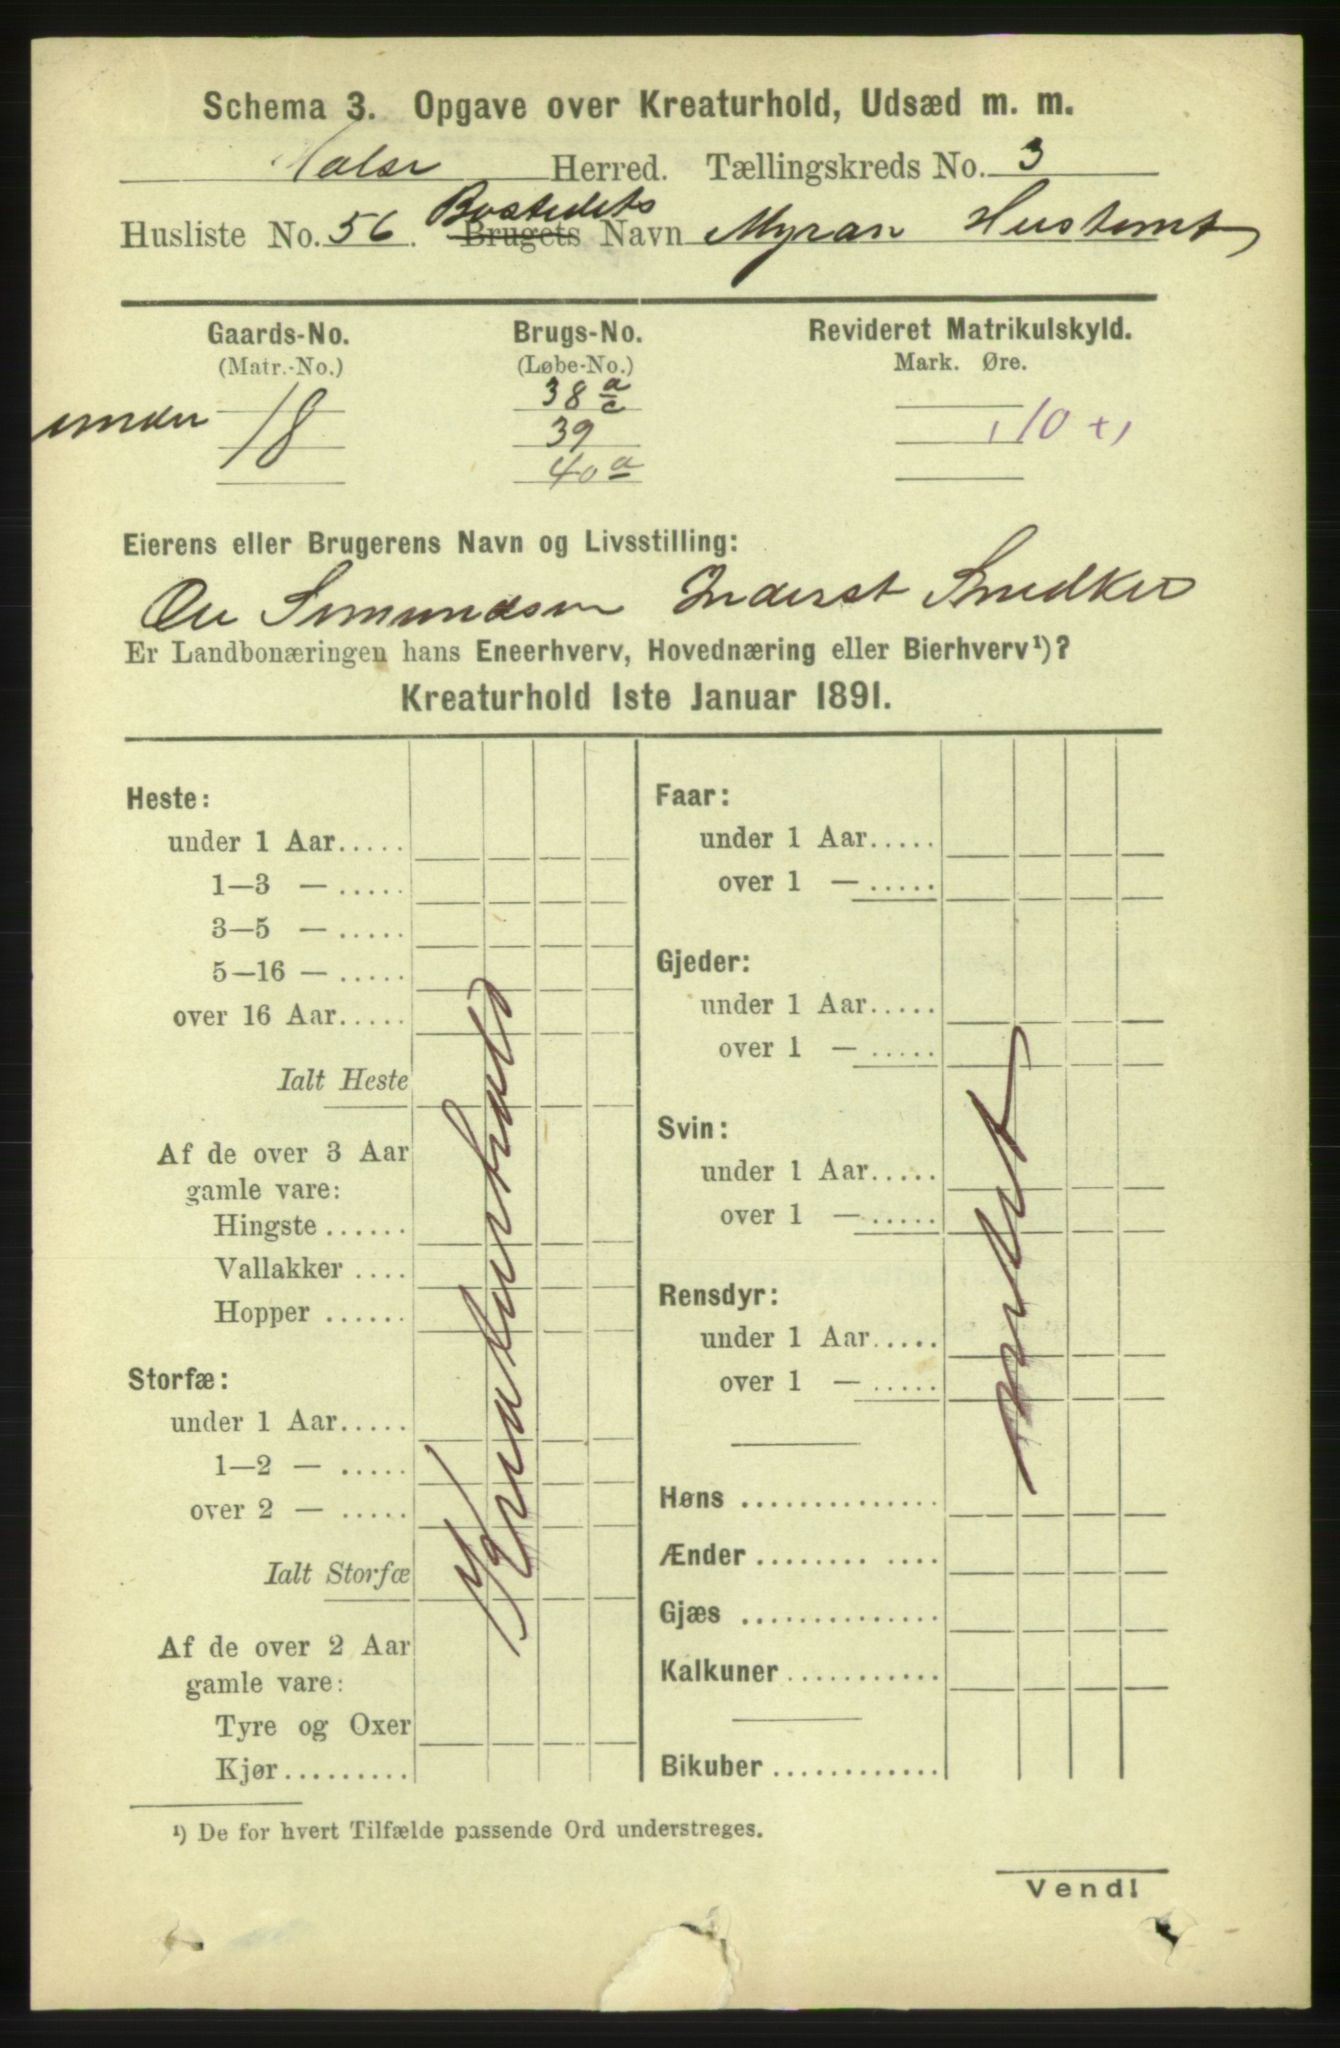 Schema 3. Opgave over Kreaturhold, Udsæd m. m.
Halse Herred. Tællingskreds No. 3
Husliste No. 56. Bostedets Brugets Navn Myran Hustomt
Gaards-No. Brugs-No. Revideret Matrikulskyld.
(Matr.-No.) (Løbe-No.) Mark. Øre.
under 18 38 a/c
39 ,10 +,
40 a
Eierens eller Brugerens Navn og Livsstilling:
Ole Simundsen Inderst Snedker
Er Landbonæringen hans Eneerhverv, Hovednæring eller Bierhverv¹)?
Kreaturhold 1ste Januar 1891.
Heste:
under 1 Aar.....
1—3 — .....
3—5 — .....
5—16 — .....
over 16 Aar.....
Ialt Heste
Af de over 3 Aar
gamle vare:
Hingste ......
Vallakker ....
Hopper ......
Storfæ:
under 1 Aar.....
1—2 — .....
over 2 — .....
Ialt Storfæ
Af de over 2 Aar
gamle vare:
Tyre og Oxer
Kjør.........
Kreaturhold
Faar:
under 1 Aar.....
over 1 — .....
Gjeder:
under 1 Aar.....
over 1 — .....
Svin:
under 1 Aar.....
over 1 — .....
Rensdyr:
under 1 Aar.....
over 1 — .....
Høns ..............
Ænder ........ ....
Gjæs ..............
Kalkuner ...........
Bikuber .............
intet
¹) De for hvert Tilfælde passende Ord understreges.
Vend!